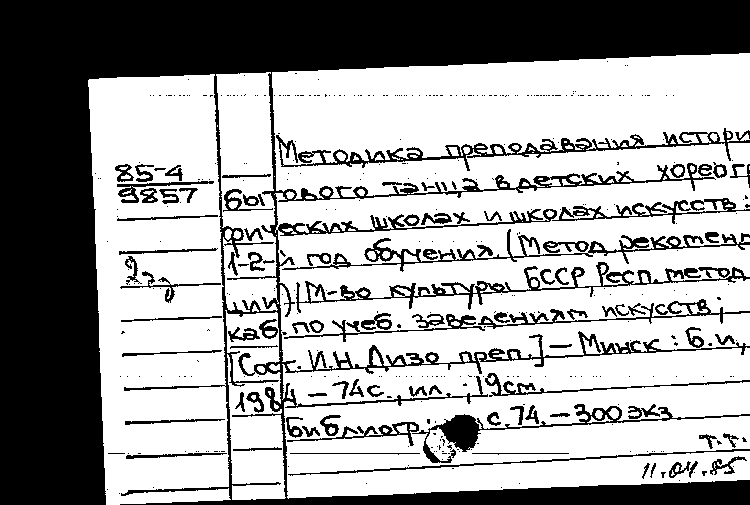 Методика преподавания истори
85-4
9857
бытового танца в детских хореогр
фических школах и школах искусств:
1-2-й год обучения. (Метод. рекоменд
ции) / М-во культуры БССР, Респ. метод.
каб. по учеб. заведениям искусств;
[Сост. И.Н. Дизо, преп.] — Минск : Б.и.,
1984. — 74 с., ил. ; 19 см.
Библиогр.: с. 74. — 300 экз.
т.т.
11.04.85